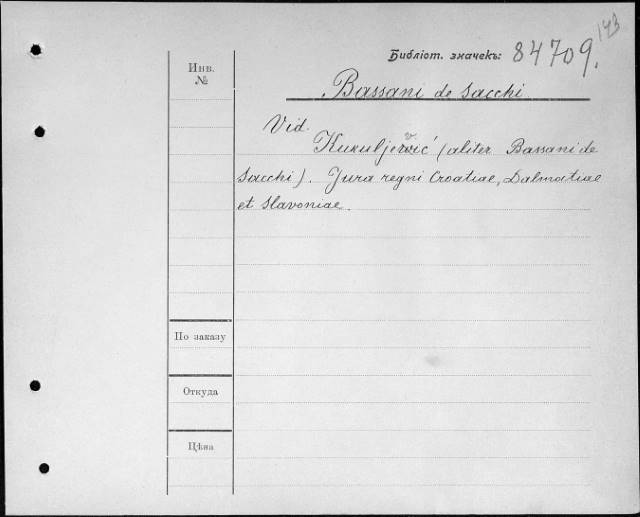 143
Библіот. значекъ: 84709.
Инв.
№
Bassani de Sacchi
Vid.
Kukuljević (aliter Bassani de
Sacchi). Jura regni Croatiae, Dalmatiae
et Slavoniae.
По заказу
Откуда
Цѣна